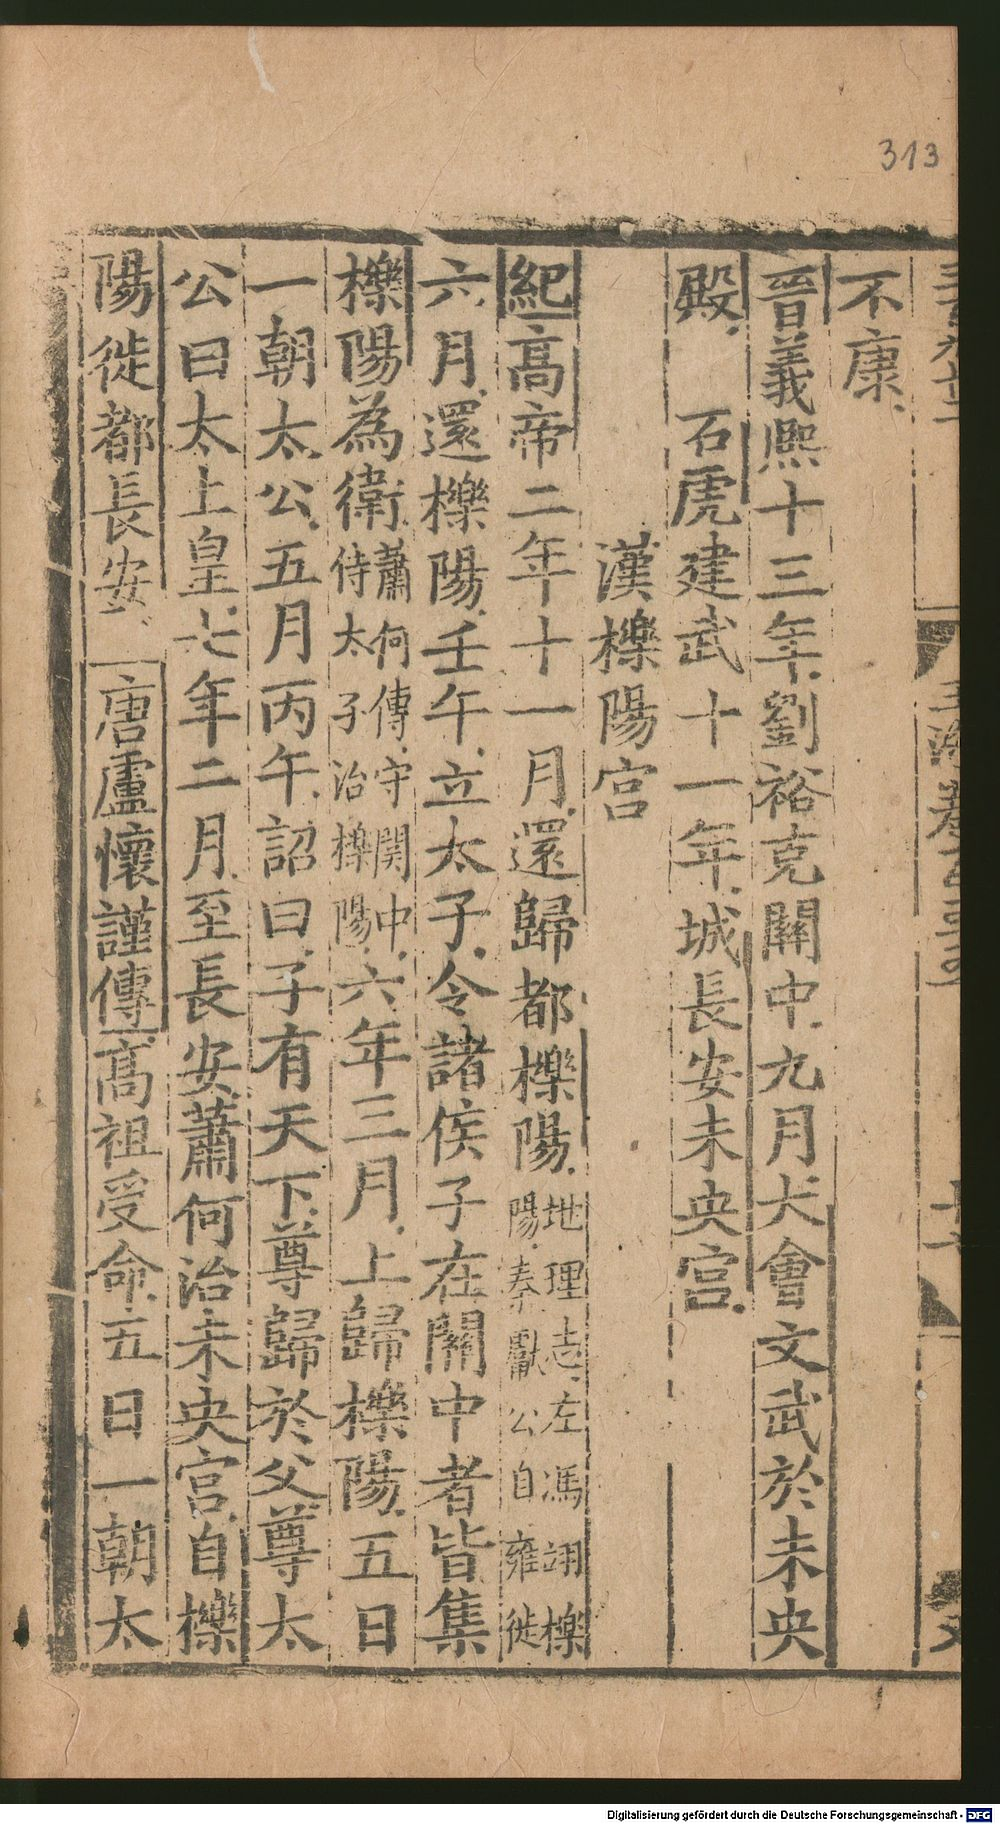 313
不康
晉義熙十三年劉裕克關中九月大會文武於未央
殿　石虎建武十一年城長安未央宫
漢櫟陽宫
紀高帝二年十一月還歸都櫟陽地理志左馮翊櫟陽秦獻公自雍徙
六月還櫟陽壬午立太子令諸侯子在關中者皆集
櫟陽為衛蕭何傳守関中侍太子治櫟陽六年三月上歸櫟陽五日
一朝太公五月丙午詔曰子有天下尊歸於父尊太
公曰太上皇七年二月至長安蕭何治未央宫自櫟
陽徙都長安　唐盧懷謹傳高祖受命五日一朝太
Digitalisierung gefördert durch die Deutsche Forschungsgemeinschaft - DFG